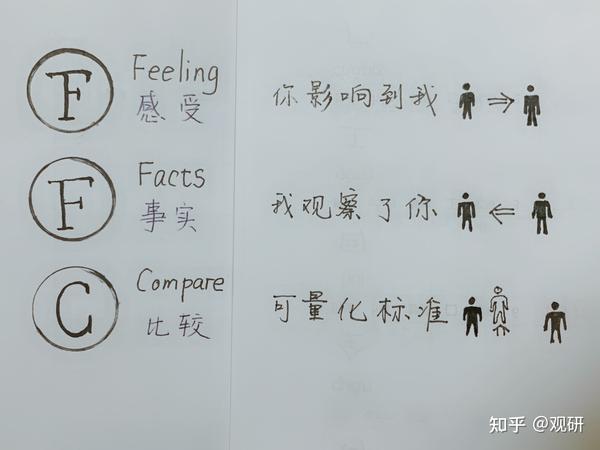 F Feeling
感受
你影响到我
F Facts
事实
我观察了你
C Compare
比较
可量化标准
知乎 @观研